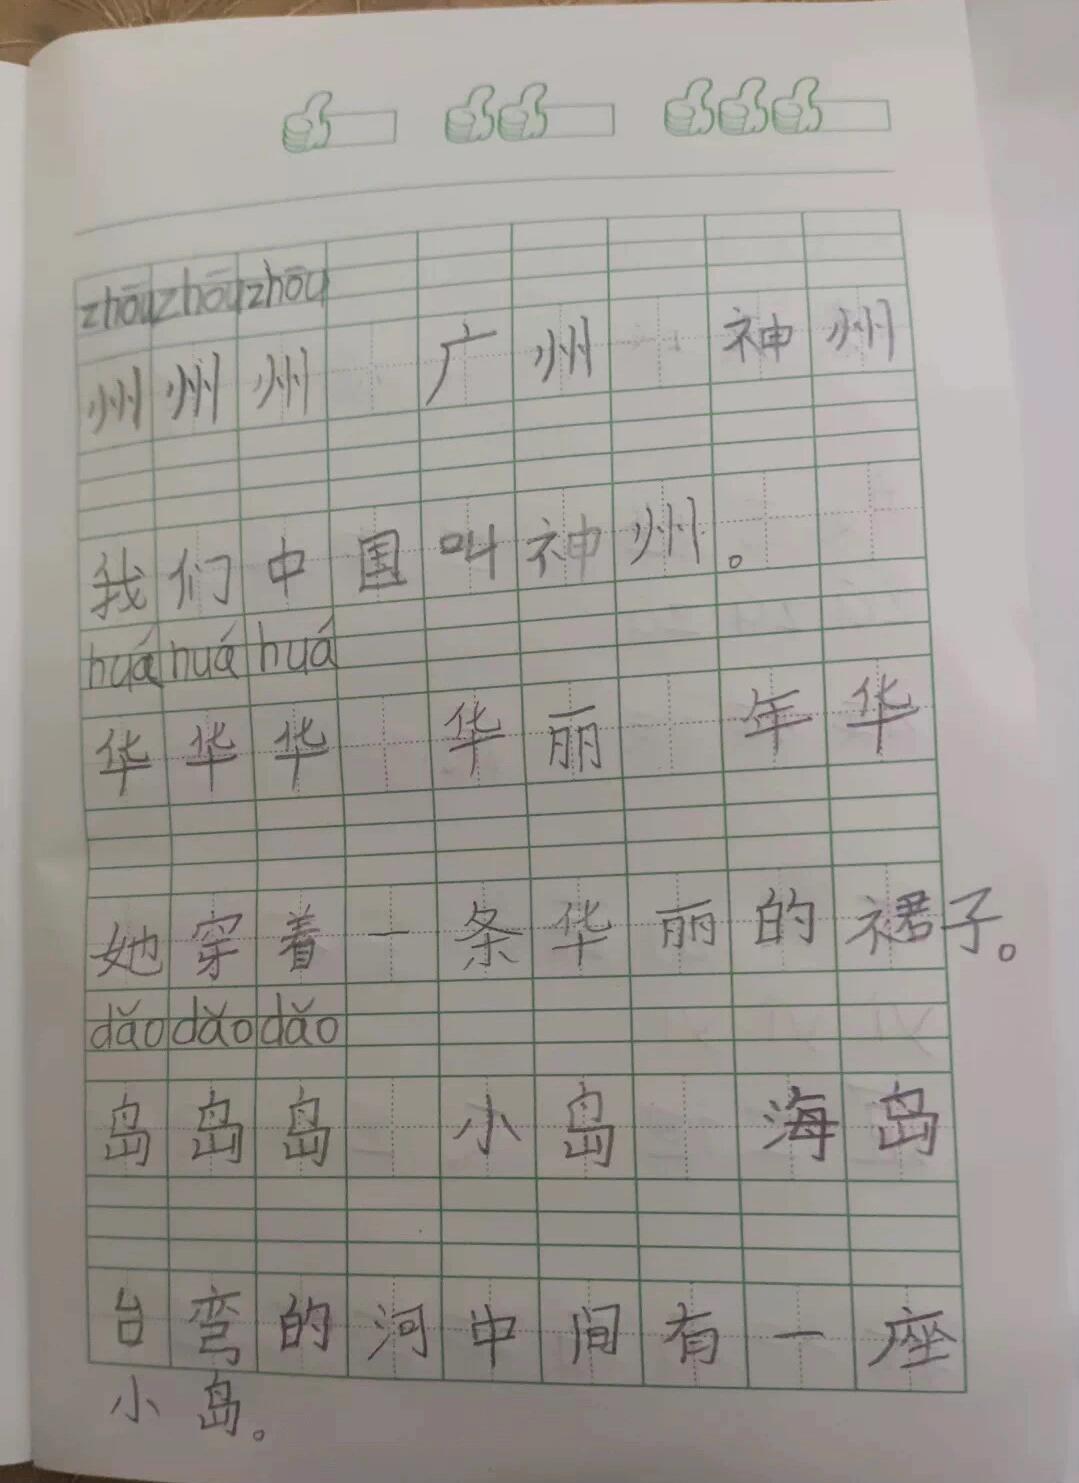 zhōu zhōu zhōu
州 州 州 广 州 神 州
我 们 中 国 叫 神 州 。
huá huá huá
华 华 华 华 丽 年 华
她 穿 着 一 条 华 丽 的 裙 子。
dǎo dǎo dǎo
岛 岛 岛 小 岛 海 岛
台 弯 的 河 中 间 有 一 座
小 岛。